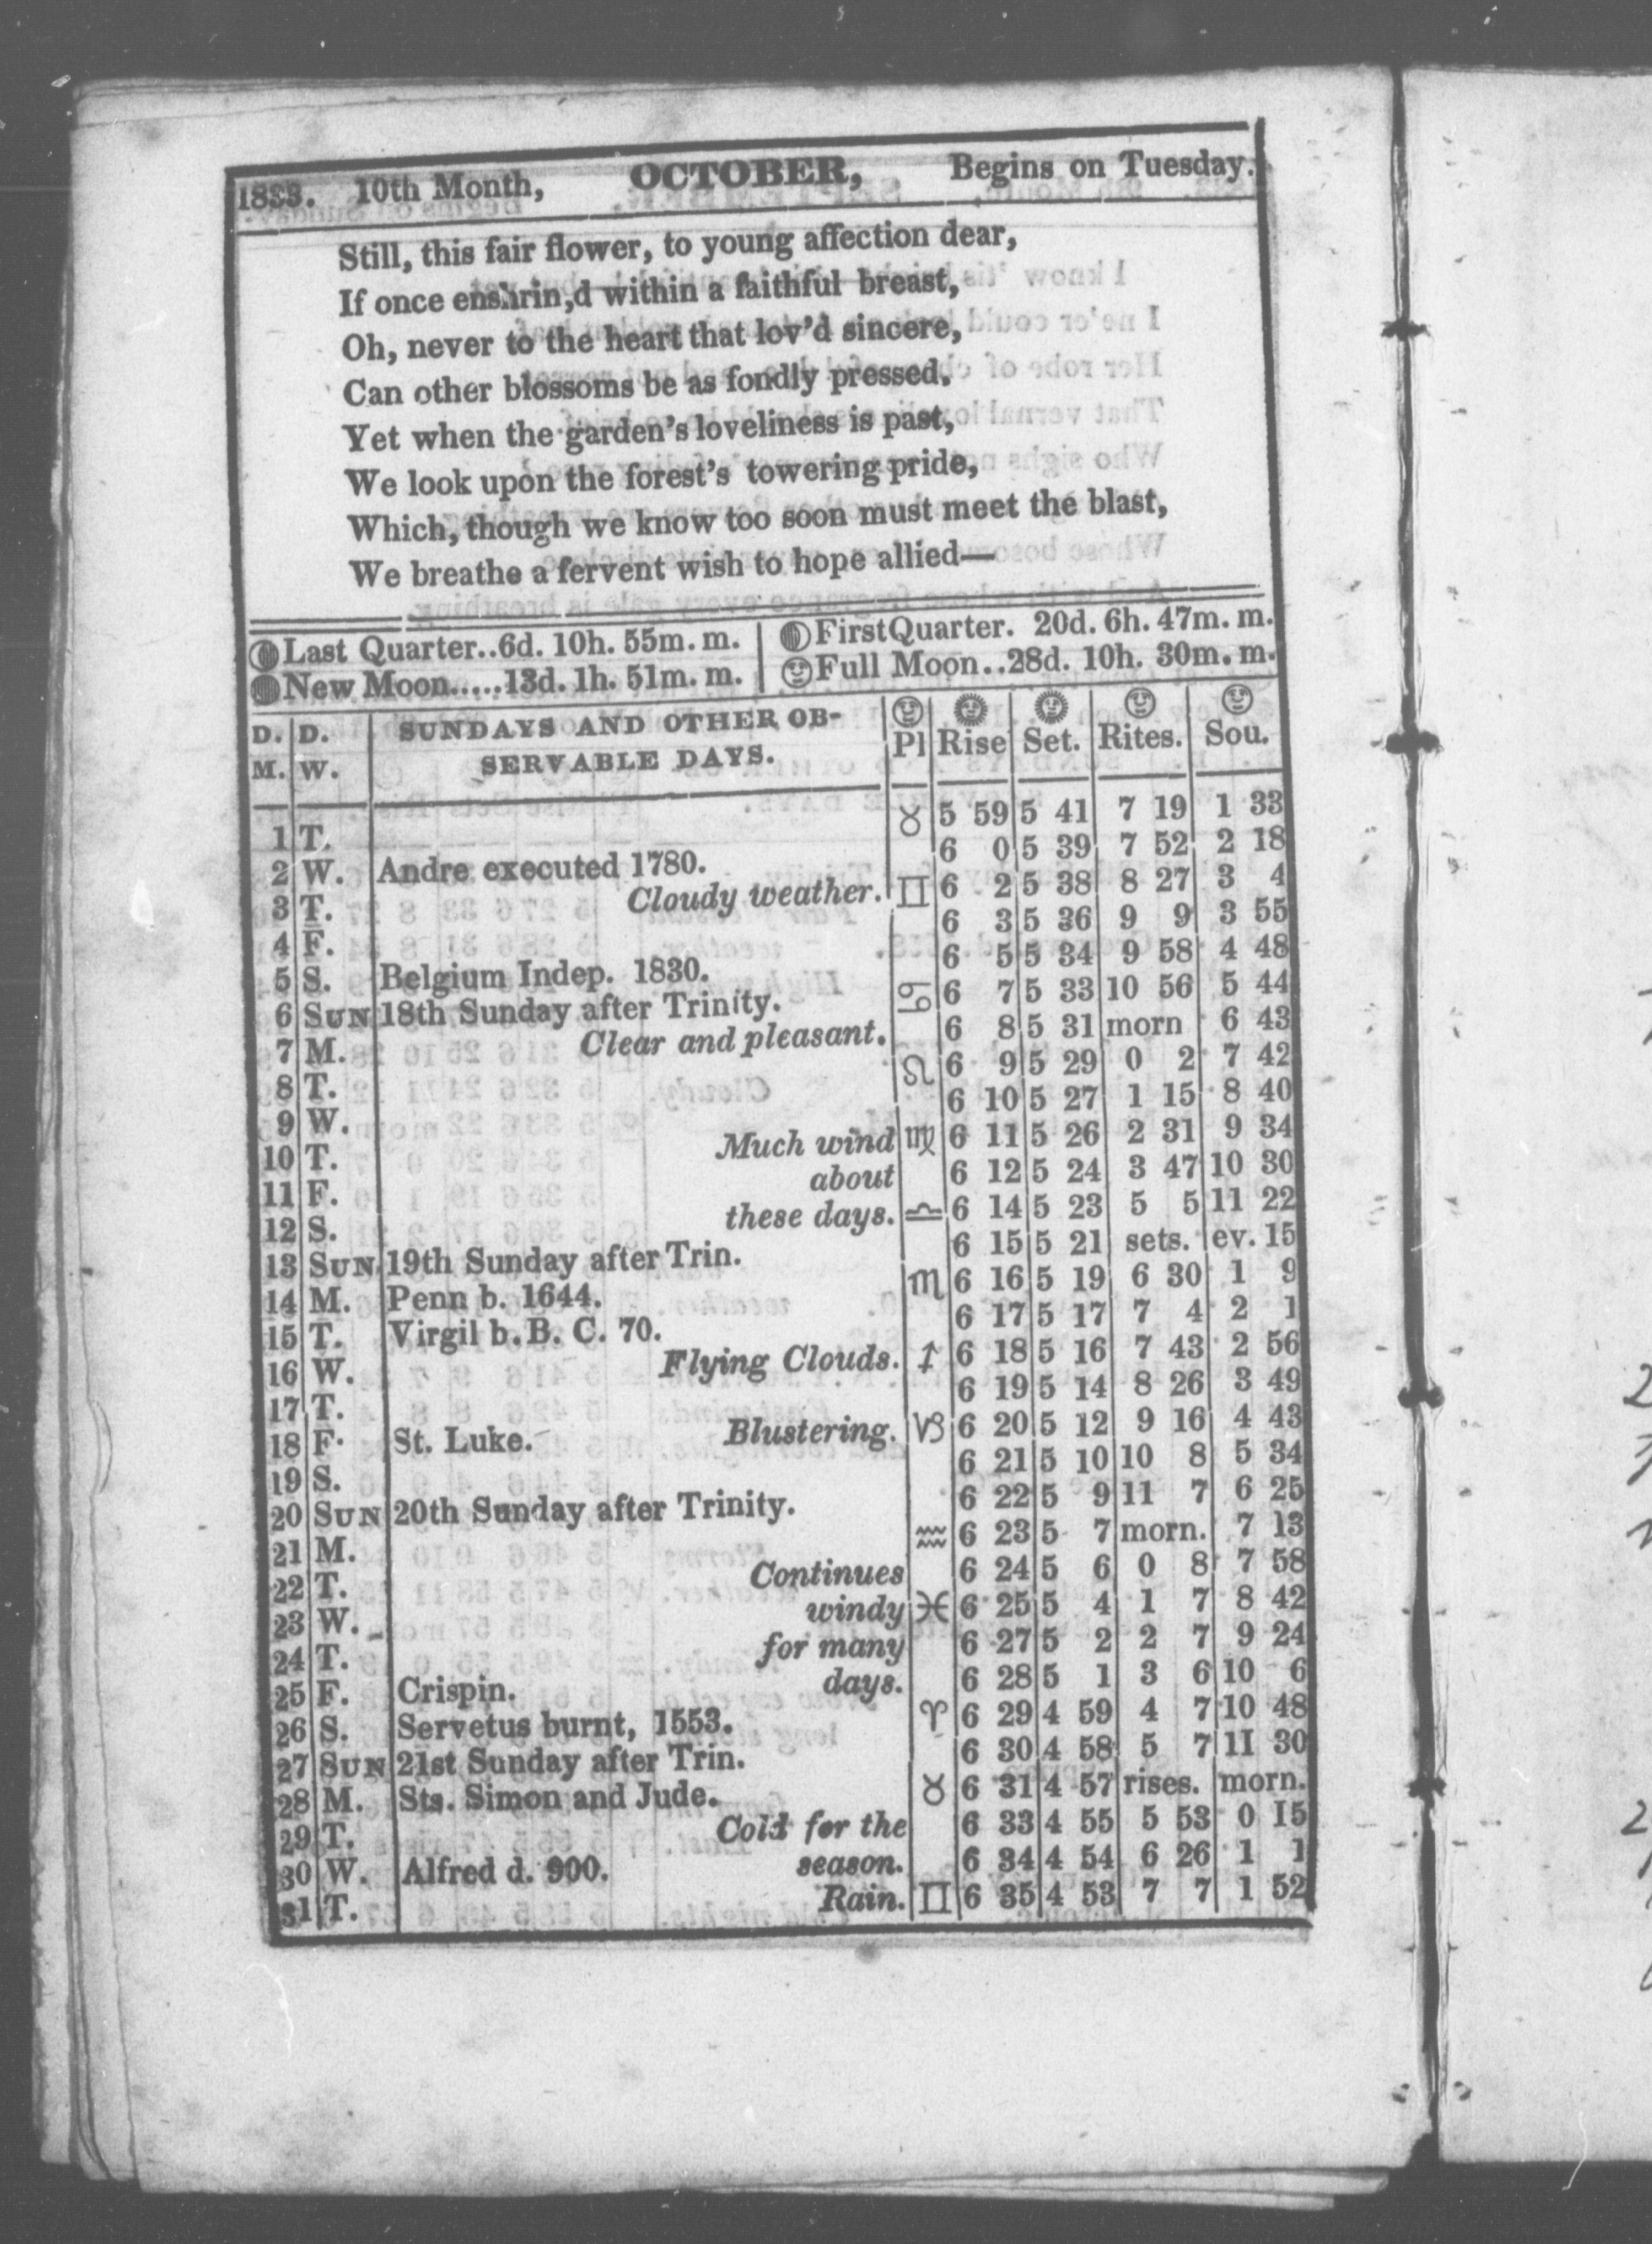 1833. 10th Month, OCTOBER, Begins on Tuesday.
Still, this fair flower, to young affection dear,
If once enshrin,d within a faithful breast,
Oh, never to the heart that lov'd sincere,
Can other blossoms be as fondly pressed.
Yet when the garden's loveliness is past,
We look upon the forest's towering pride,
Which, though we know too soon must meet the blast,
We breathe a fervent wish to hope allied—
Last Quarter..6d. 10h. 55m. m. FirstQuarter. 20d. 6h. 47m. m.
New Moon.....13d. 1h. 51m. m. Full Moon..28d. 10h. 30m. m.
D. M. D. W. SUNDAYS AND OTHER OB-
SERVABLE DAYS. Pl Rise Set. Rites. Sou.
1 T. ♉ 5 59 5 41 7 19 1 33
2 W. Andre executed 1780. 6 0 5 39 7 52 2 18
3 T. Cloudy weather. ♊ 6 2 5 38 8 27 3 4
4 F. 6 3 5 36 9 9 3 55
5 S. Belgium Indep. 1830. 6 5 5 34 9 58 4 48
6 SUN 18th Sunday after Trinity. ♋ 6 7 5 33 10 56 5 44
7 M. Clear and pleasant. 6 8 5 31 morn 6 43
8 T. ♌ 6 9 5 29 0 2 7 42
9 W. 6 10 5 27 1 15 8 40
10 T. Much wind ♍ 6 11 5 26 2 31 9 34
11 F. about 6 12 5 24 3 47 10 30
12 S. these days. ♎ 6 14 5 23 5 5 11 22
13 SUN 19th Sunday after Trin. 6 15 5 21 sets. ev. 15
14 M. Penn b. 1644. ♏ 6 16 5 19 6 30 1 9
15 T. Virgil b. B. C. 70. 6 17 5 17 7 4 2 1
16 W. Flying Clouds. ♐ 6 18 5 16 7 43 2 56
17 T. 6 19 5 14 8 26 3 49
18 F. St. Luke. Blustering. ♑ 6 20 5 12 9 16 4 43
19 S. 6 21 5 10 10 8 5 34
20 SUN 20th Sunday after Trinity. 6 22 5 9 11 7 6 25
21 M. ♒ 6 23 5 7 morn. 7 13
22 T. Continues 6 24 5 6 0 8 7 58
23 W. windy ♓ 6 25 5 4 1 7 8 42
24 T. for many 6 27 5 2 2 7 9 24
25 F. Crispin. days. 6 28 5 1 3 6 10 6
26 S. Servetus burnt, 1553. ♈ 6 29 4 59 4 7 10 48
27 SUN 21st Sunday after Trin. 6 30 4 58 5 7 11 30
28 M. Sts. Simon and Jude. ♉ 6 31 4 57 rises. morn.
29 T. Cold for the 6 33 4 55 5 53 0 15
30 W. Alfred d. 900. season. 6 34 4 54 6 26 1 1
31 T. Rain. ♊ 6 35 4 53 7 7 1 52